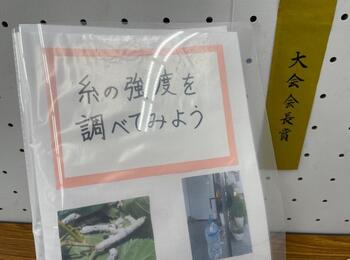 糸の強度を
調べてみよう
大会会長賞